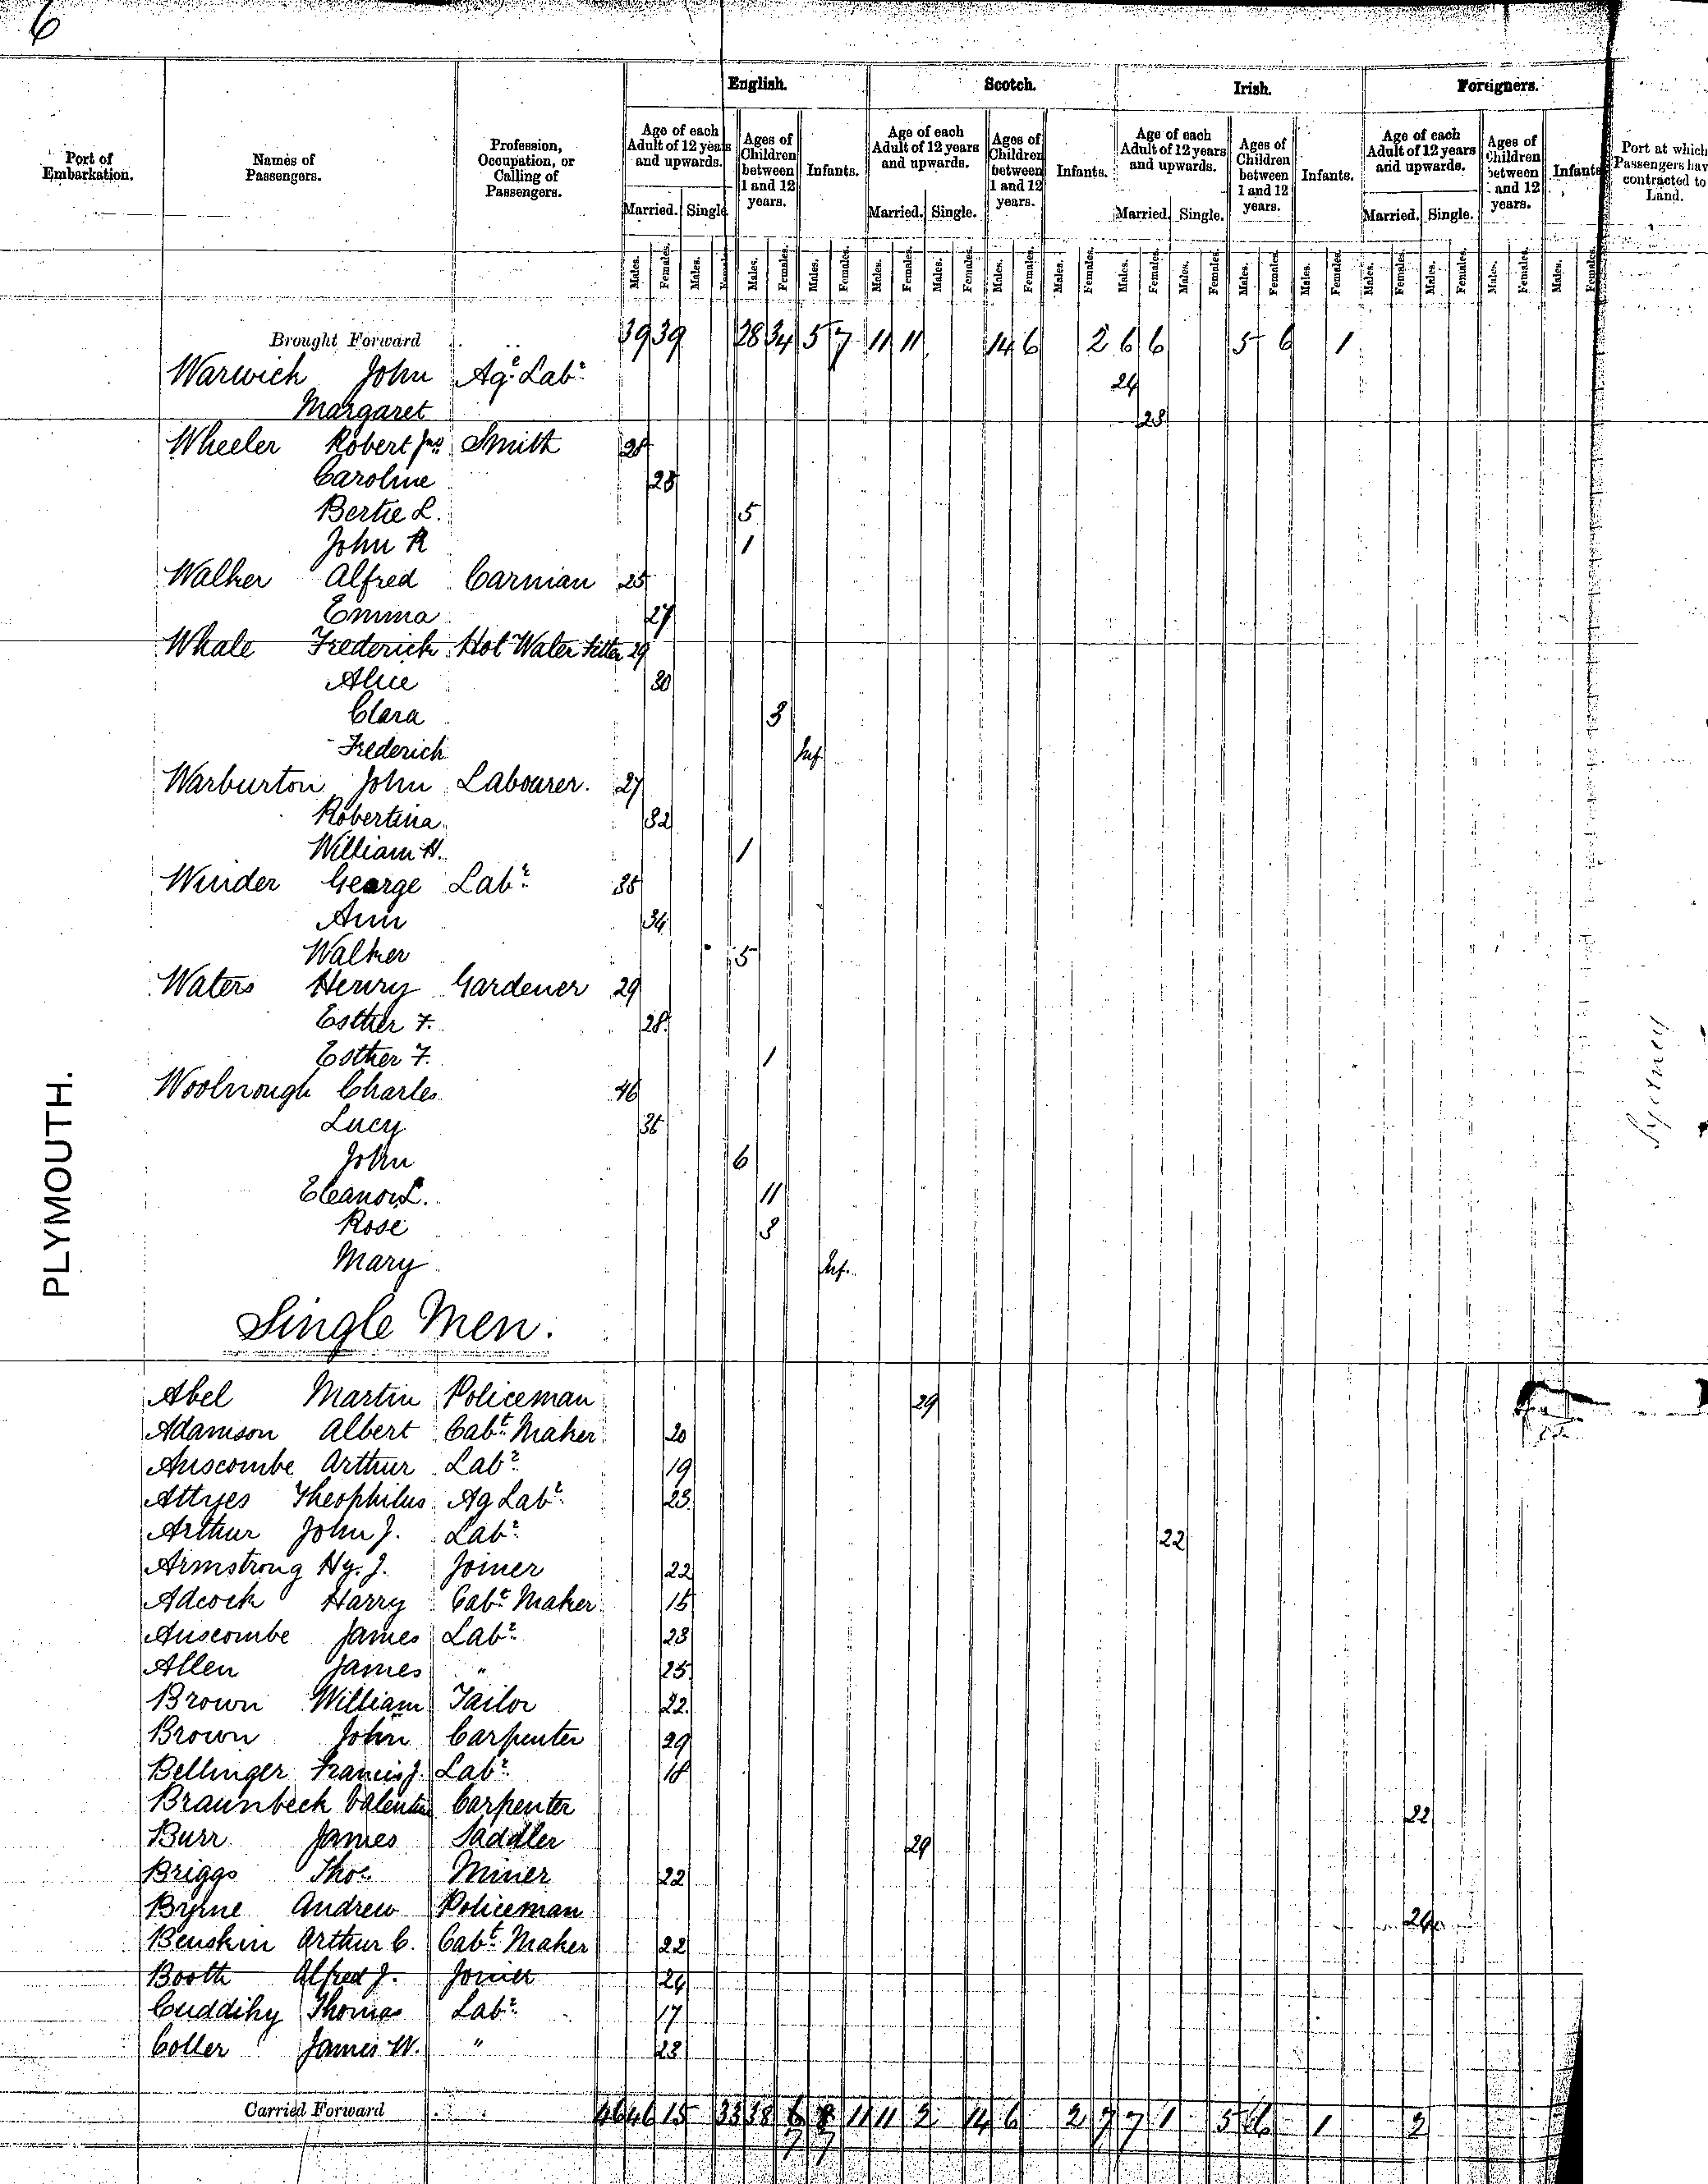 6
English. Scotch. Irish. Foreigners.
Port of Embarkation. Names of Passengers. Profession, Occupation, or Calling of Passengers. Age of each Adult of 12 years and upwards. Ages of Children between 1 and 12 years. Infants. Age of each Adult of 12 years and upwards. Ages of Children between 1 and 12 years. Infants. Age of each Adult of 12 years and upwards. Ages of Children between 1 and 12 years. Infants. Age of each Adult of 12 years and upwards. Ages of Children between 1 and 12 years. Infants Port at which Passengers hav contracted to Land.
Married. Single Married. Single. Married. Single. Married. Single.
Males. Females. Males. Females Males. Females. Males. Females. Males. Females. Males. Females. Males. Females. Males. Females. Males. Females. Males. Females. Males. Females. Males. Females. Males. Females. Males. Females. Males. Females. Males. Females.
Brought Forward 39 39 28 34 5 7 11 11 14 6 2 6 6 5 6 1
Warwick John Ag. Labr 24
Margaret 23
Wheeler Robert Jno Smith 28
Caroline 28
Bertie L. 5
John R 1
Walker Alfred Carman 25
Emma 27
Whale Frederick Hot Water Fitter 29
Alice 30
Clara 3
Frederick Inf
Warburton John Labourer. 27
Robertina 32
William H. 1
Winder George Labr 35
Ann 34
Walker 5
Waters Henry Gardener 29
Esther F. 28
Esther F. 1
Woolnough Charles 46
Lucy 35
John 6
Eleanor L. 11
Rose 3
Mary Inf.
PLYMOUTH.
Sydney
Single Men.
Abel Martin Policeman 29
Adamson Albert Cabt Maker 20
Anscombe Arthur Labr 19
Attyes Theophilus Ag Labr 23
Arthur John J. Labr 22
Armstrong Hy. J. Joiner 22
Adcock Harry Cabt Maker 15
Anscombe James Labr 23
Allen James " 25
Brown William Tailor 22
Brown John Carpenter 29
Bellinger Francis J. Labr 18
Braunbeck Valentin Carpenter 22
Burr James Saddler 29
Briggs Thos Miner 22
Byrne Andrew Policeman 24
Benskin Arthur C. Cabt Maker 22
Booth Alfred J. Joiner 24
Cuddihy Thomas Labr 17
Coller James W. " 23
Carried Forward 46 46 15 33 38 6 8 11 11 2 14 6 2 7 7 1 5 6 1 2
7 7